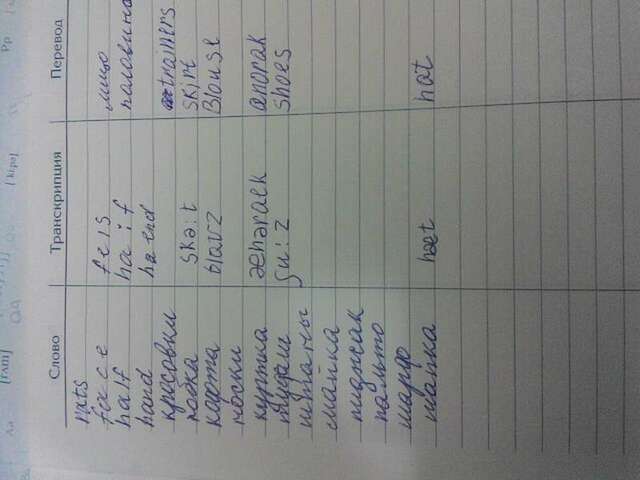 Aa
[ki:pə]
Pp
Слово Транскрипция Перевод
rats
face feis лицо
half ha:f половина
hand haend
кросовки trainers
юбка skə:t skirt
кофта blauz Blouse
носки
куртка ænəraek anorak
туфли ʃu:z shoes
штаны
майка
пиджак
пальто
шарф
шапка hæt hat